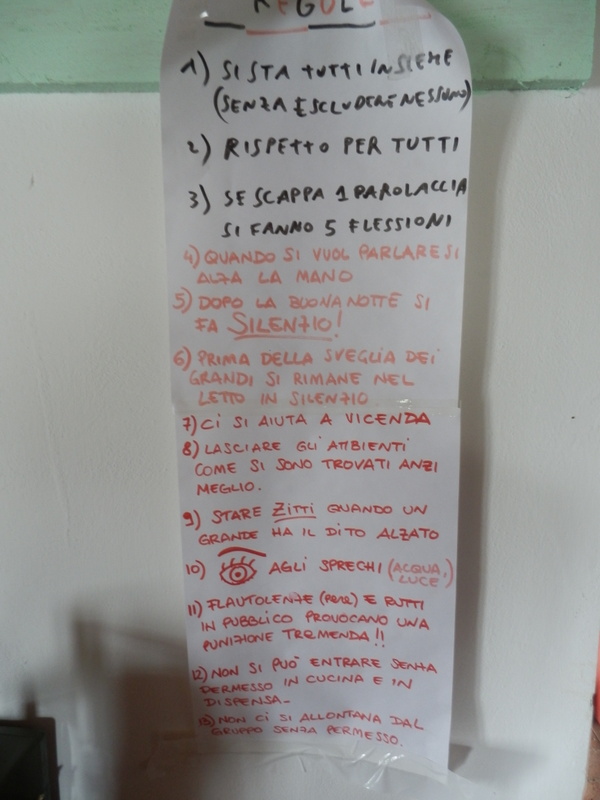 REGOLE
1) SI STA TUTTI INSIEME
(SENZA ESCLUDERE NESSUNO)
2) RISPETTO PER TUTTI
3) SE SCAPPA 1 PAROLACCIA
SI FANNO 5 FLESSIONI
4) QUANDO SI VUOL PARLARE SI
ALZA LA MANO
5) DOPO LA BUONANOTTE SI
FA SILENZIO!
6) PRIMA DELLA SVEGLIA DEI
GRANDI SI RIMANE NEL
LETTO IN SILENZIO
7) CI SI AIUTA A VICENDA
8) LASCIARE GLI AMBIENTI
COME SI SONO TROVATI ANZI
MEGLIO.
9) STARE ZITTI QUANDO UN
GRANDE HA IL DITO ALZATO
10) AGLI SPRECHI (ACQUA, LUCE)
11) FLAUTOLENZE (PETE) E RUTTI
IN PUBBLICO PROVOCANO UNA
PUNIZIONE TREMENDA!!
12) NON SI PUÒ ENTRARE SENZA
PERMESSO IN CUCINA E IN
DISPENSA-
13) NON CI SI ALLONTANA DAL
GRUPPO SENZA PERMESSO.